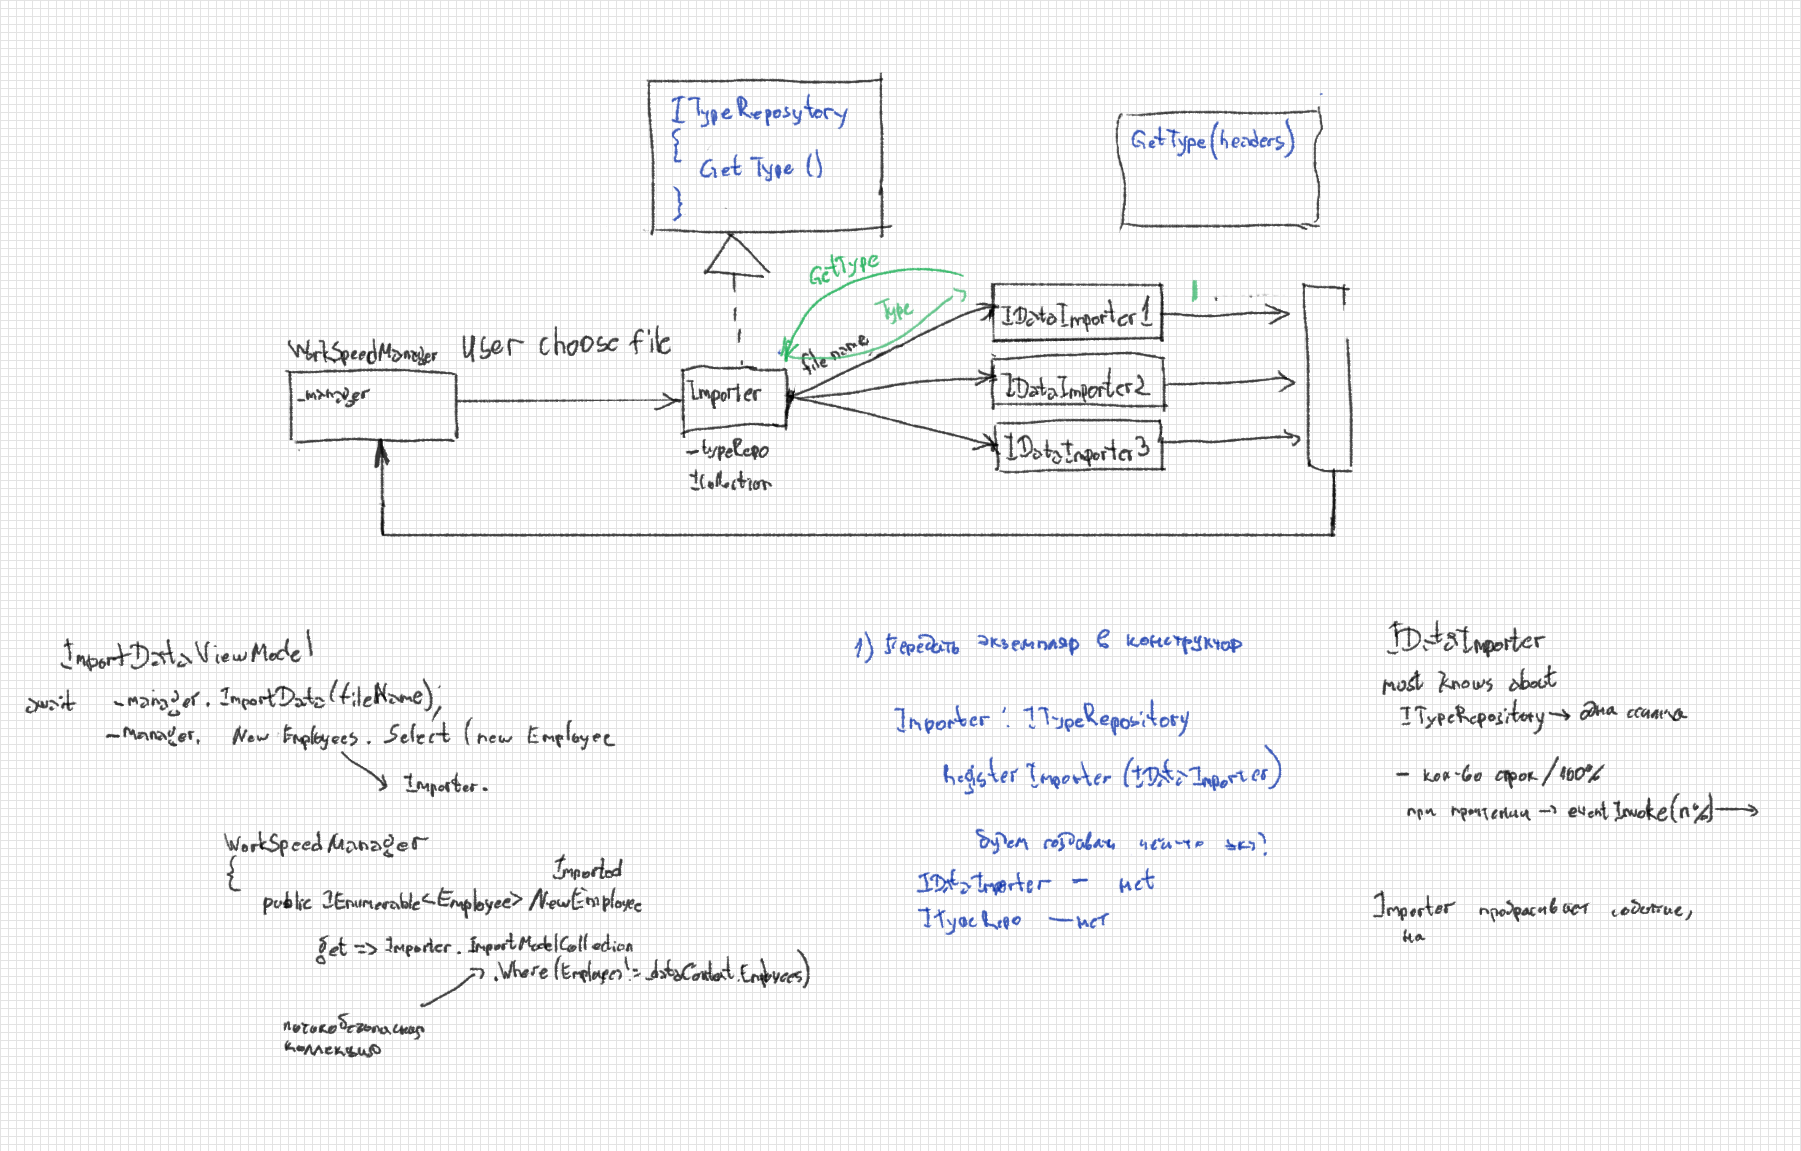 ITypeReposytory
{
GetType ()
}
GetType(headers)
GetType
Type
file name
IDataImporter1
IDataImporter2
IDataImporter3
WorkSpeedManager
User choose file
_manager
Importer
_typeRepo
ICollection
ImportDataViewModel
await _manager. ImportData(fileName),
_manager. New Employees. Select (new Employee
Importer.
WorkSpeedManager
{
Imported
public IEnumerable<Employee> /NewEmployee
get => Importer. ImportModelCollection
.Where (Employees != _dataContext.Employees)
потокобезопасная
коллекцию
1) Передать экземпляр в конструктор
Importer : ITypeRepository
Register Importer (IDataImporter)
будем создавать экз?
IDataImporter — нет
ITypeRepo — нет
IDataImporter
must knows about
ITypeRepository → одна ссылка
- кол-во строк / 100%
при прочтении → event Invoke(n%) →
Importer пробрасывает событие,
на